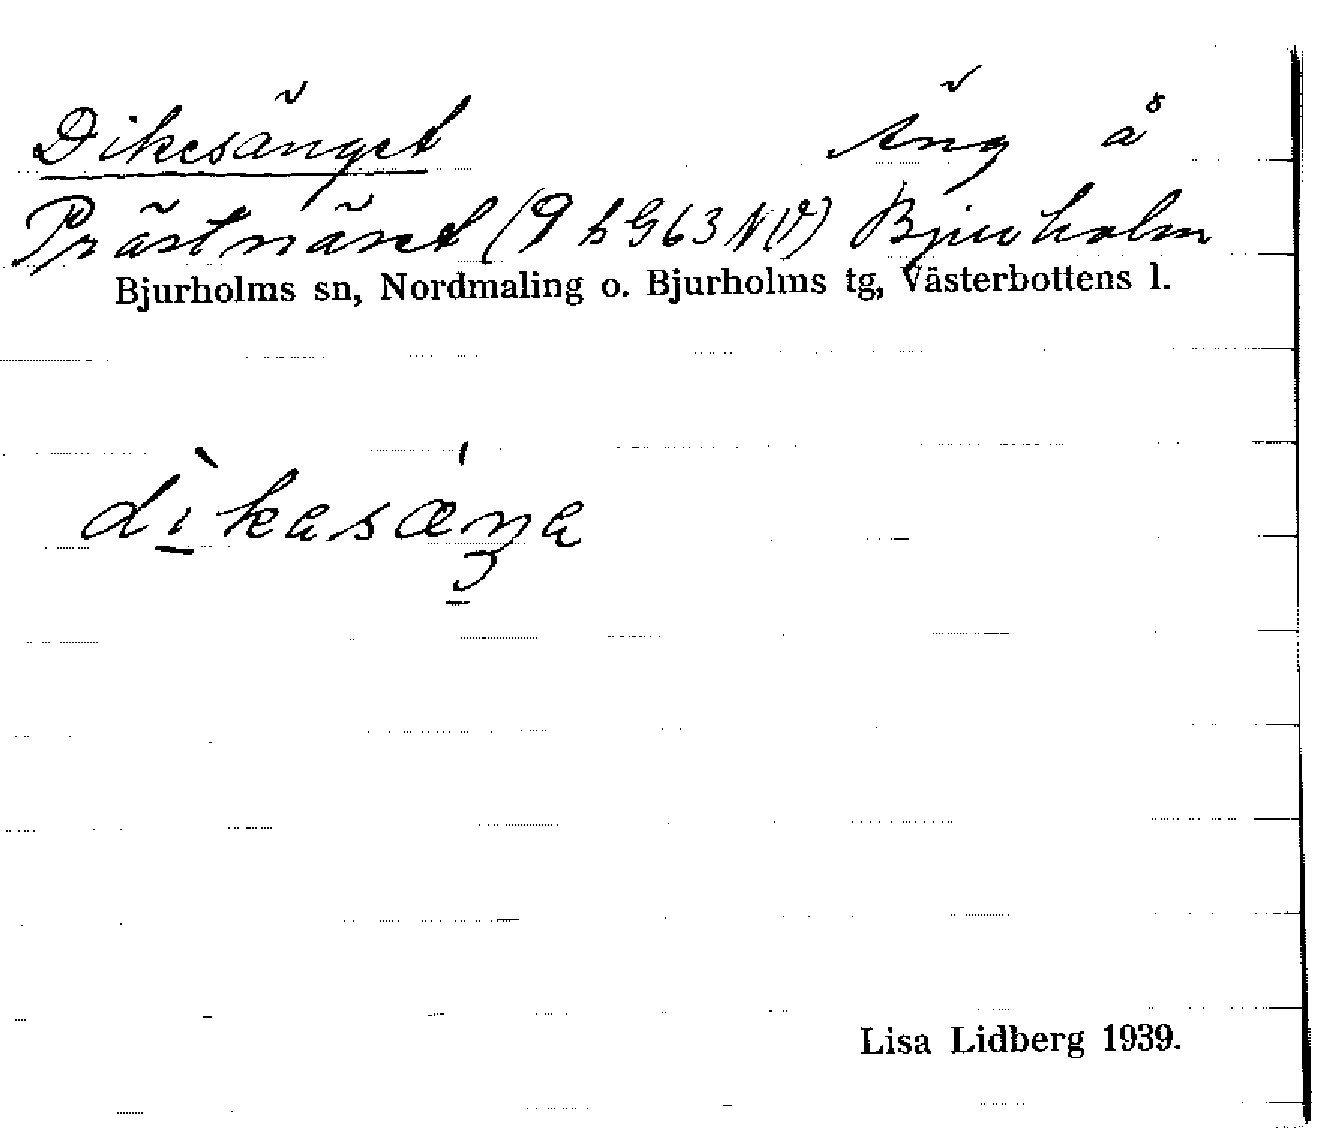 Dikesänget Äng å
Prästnäset (9 h G63 NV) Bjurholm
Bjurholms sn, Nordmaling o. Bjurholms tg, Västerbottens l.
dìkasæŋa
Lisa Lidberg 1939.